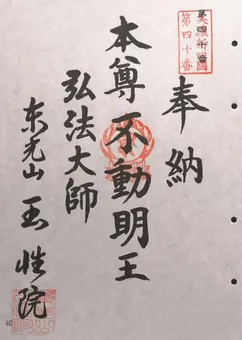 第四十番
奉納
本尊不動明王
弘法大師
東光山 玉性院
40